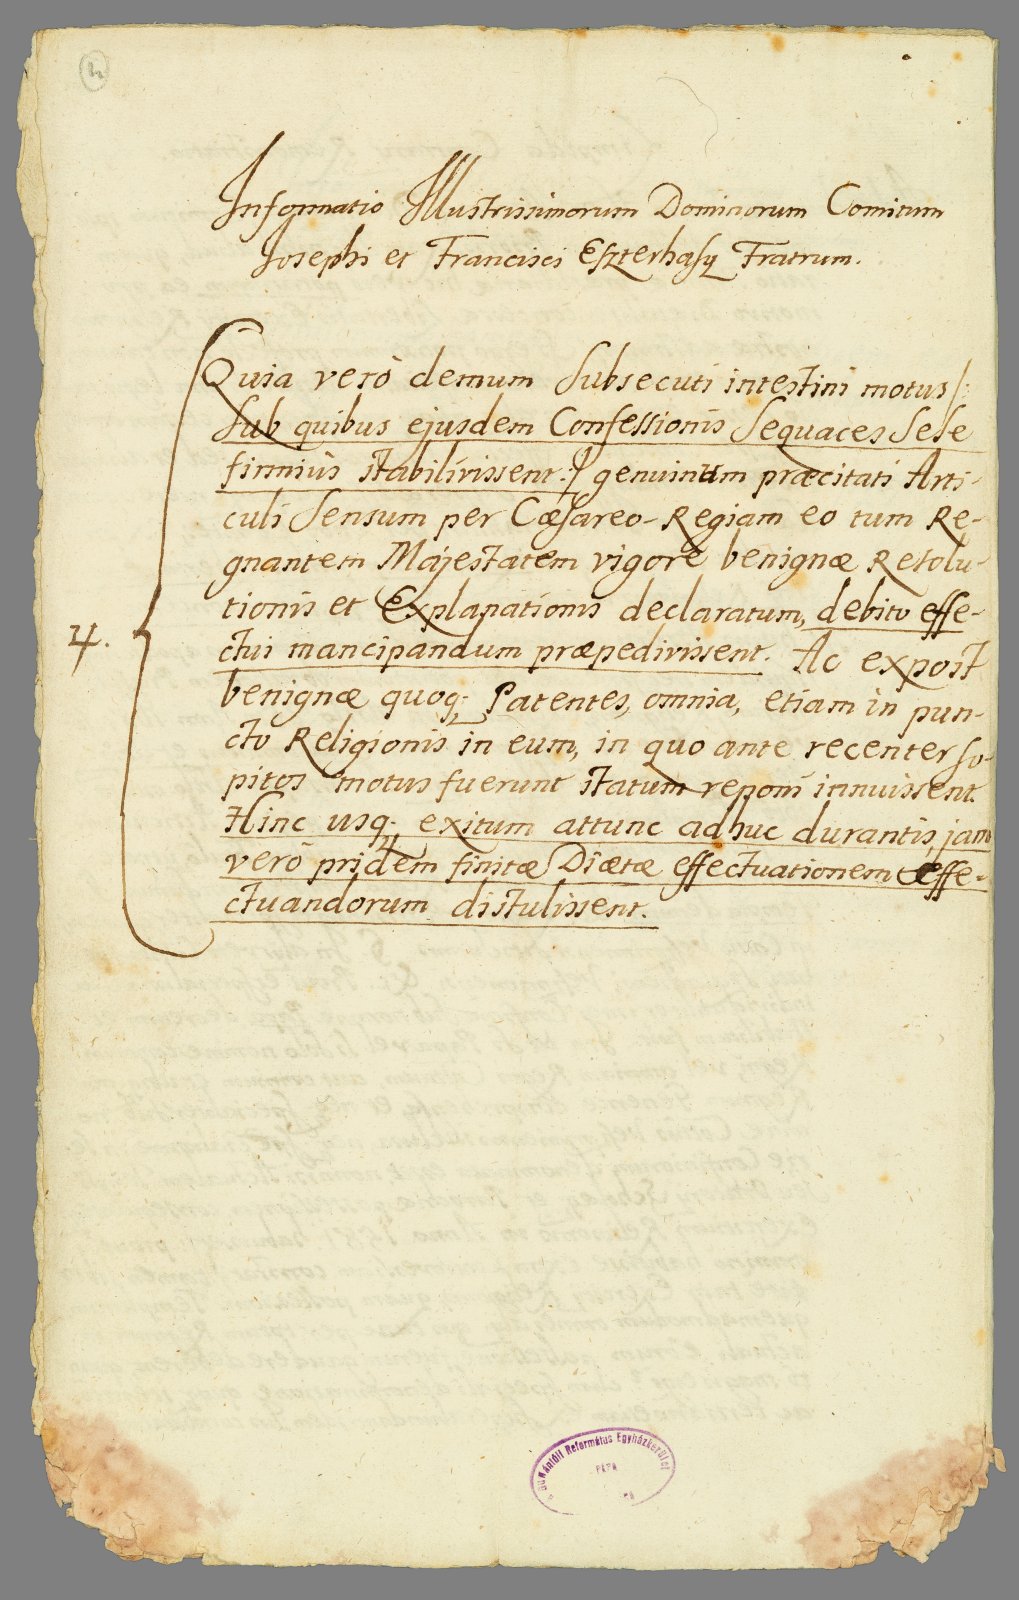 Informatio Illustrissimorum Dominorum Comitum
Josephi et Francisci Eszterhasÿ Fratrum.
Quia verò demum subsecuti intestini motus /:
sub quibus ejusdem Confessionis sequaces sese
firmiùs stabilivissent :/ genuinum præcitati Arti-
culi sensum per Cæsareo-Regiam eo tum Re-
gnantem Majestatem vigore benignæ Resolu-
tionis et Explanationis declaratum, debito effe-
4. ctui mancipandum præpedivissent. Ac expost
benignæ quoq; Patentes, omnia, etiam in pun-
cto Religionis in eum, in quo ante recenter so-
pitos motus fuerunt statum reponi innuissent.
Hinc usq; exitum attunc adhuc durantis, jam
verò pridem finitæ Diætæ effectuationem effe-
ctuandorum distulissent.
Dunántúli Református Egyházkerület
PÁPA